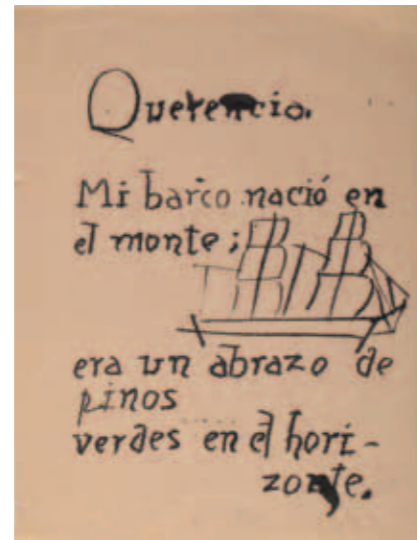 Querencia.
Mi barco nació en
el monte;
era un abrazo de
pinos
verdes en el hori-
zonte.